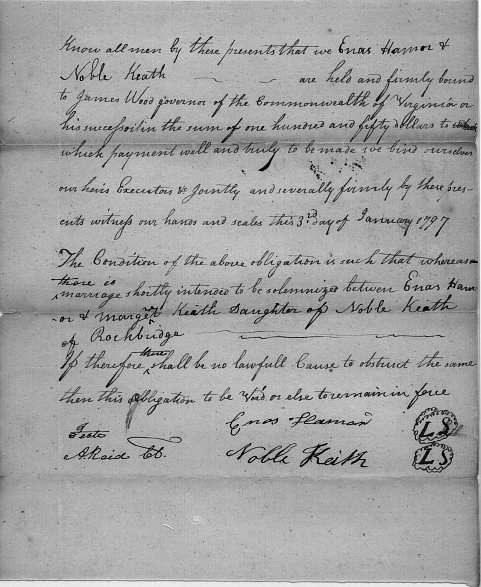 Know all men by these presents that we Enas Hamor &
Noble Keath are held and firmly bound
to James Wood governor of the Commonwealth of Virginia or
his successors in the sum of one hundred and fifty dollars to
which payment well and truly to be made we bind ourselves
our heirs Executors &c Jointly and severally firmly by these pres-
ents witness our hands and seales this 3rd day of January 1797
The Condition of the above obligation is such that whereas a
there is
marriage shortly intended to be solemnized between Enas Ham-
or & Marget Keath Daughter of Noble Keath
of Rockbridge
If therefore there shall be no lawfull Cause to obstruct the same
then this obligation to be Void or else to remain in force
Enos Haman LS
Teste
A Reid Noble Keith LS